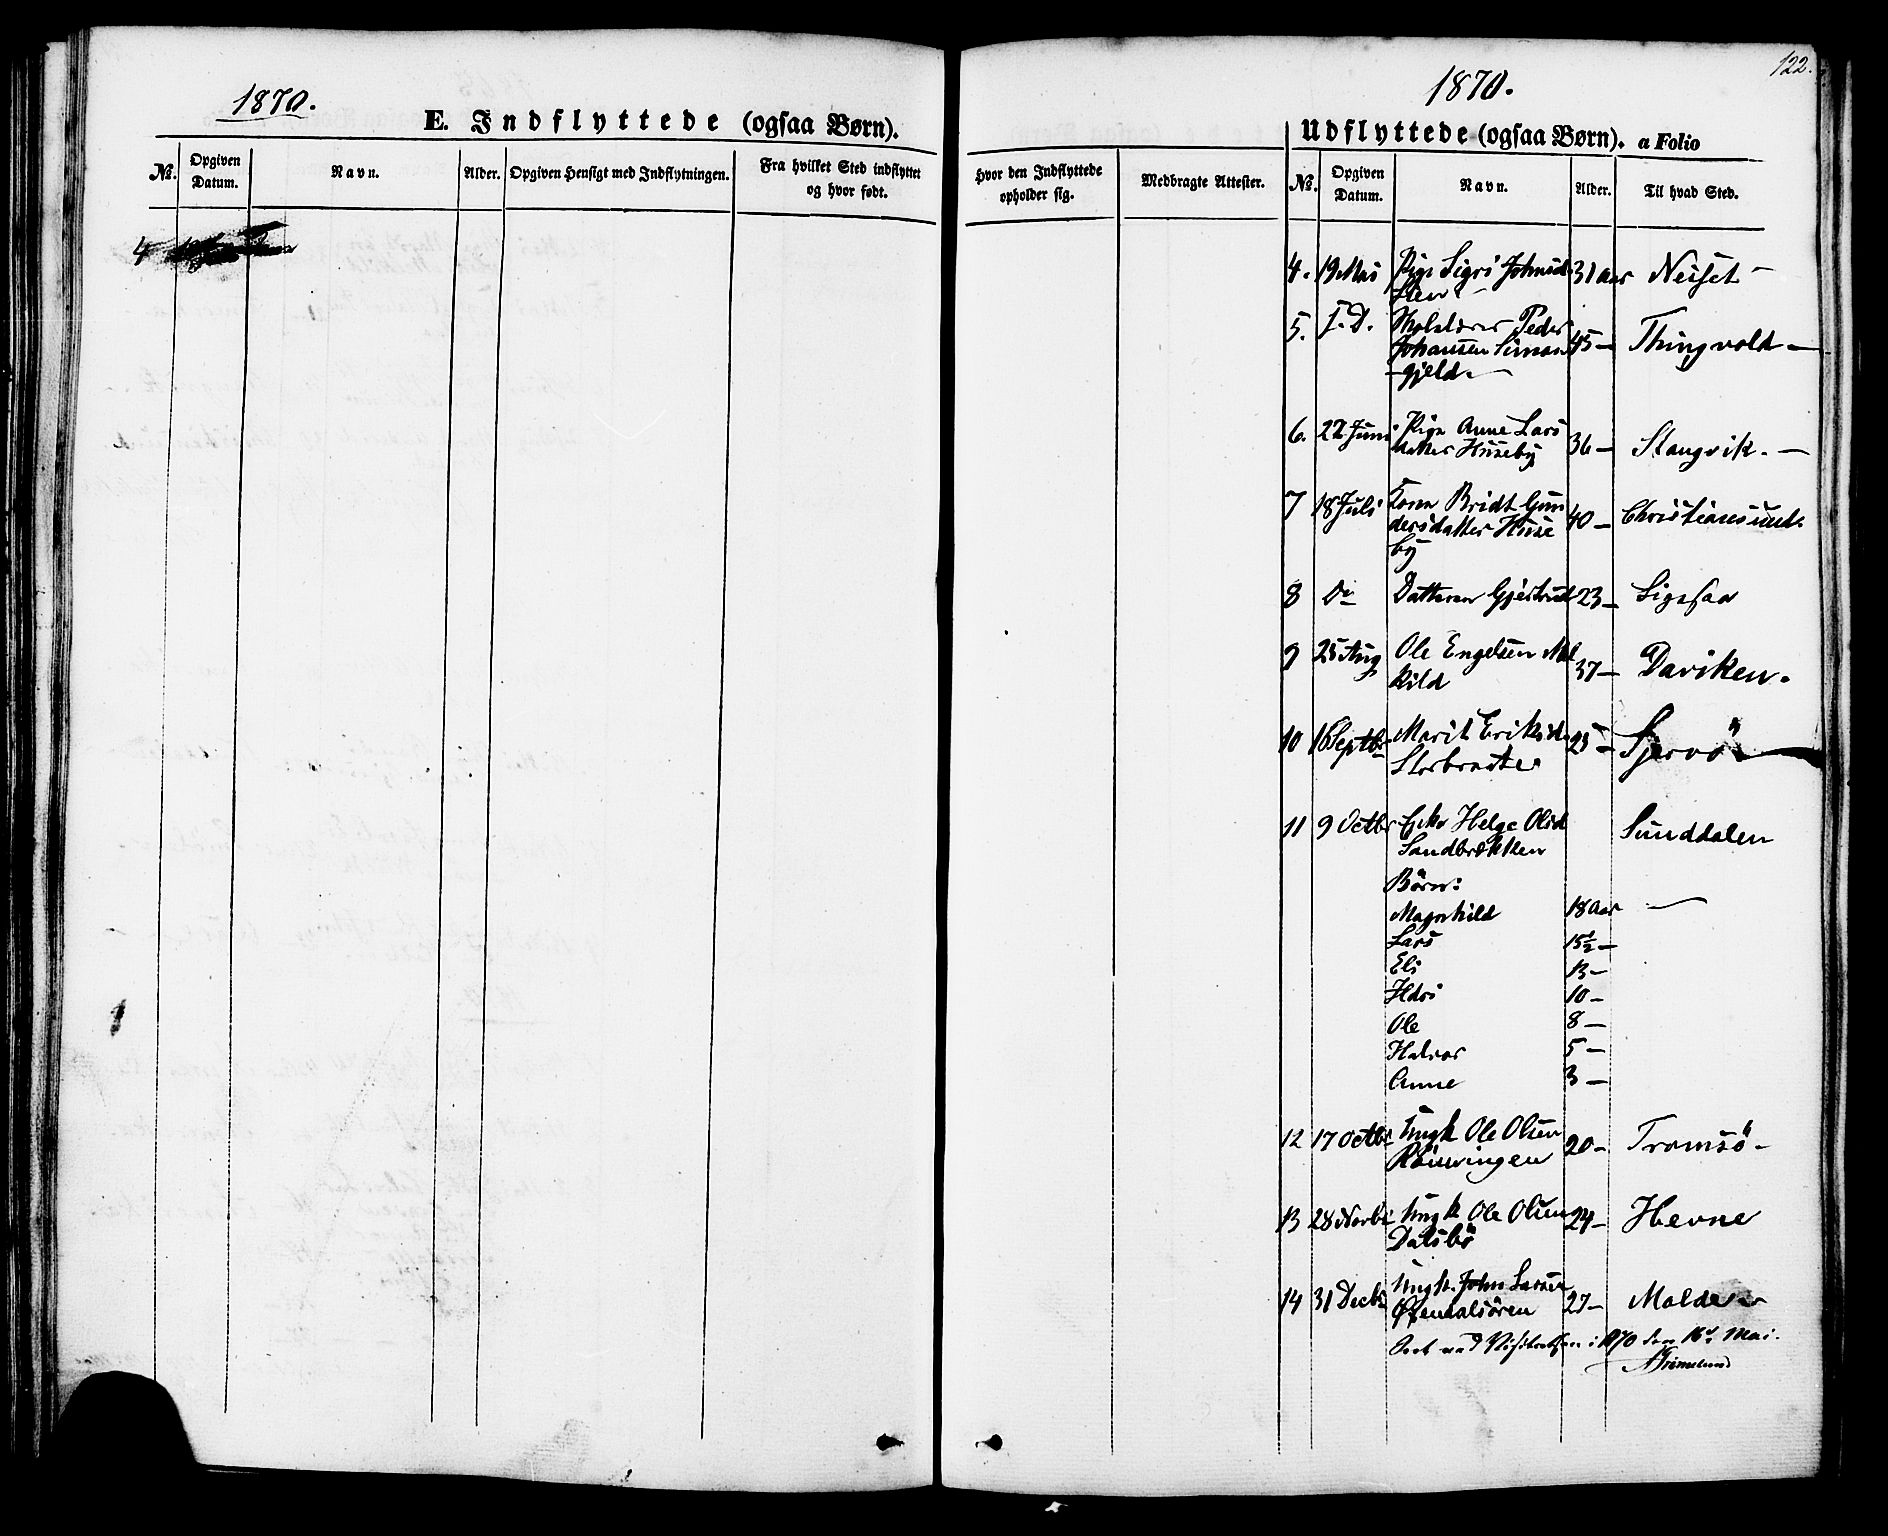 1870.
E. Indflyttede (ogsaa Børn).
No.
Opgiven Datum.
Navn.
Alder.
Opgiven Hensigt med Indflytningen.
Fra hvilket Sted indflyttet og hvor født.
4
122.
1870.
Udflyttede (ogsaa Børn). a Folio
Hvor den Indflyttede opholder sig.
Medbragte Attester.
No.
Opgiven Datum.
Navn.
Alder.
Til hvad Sted.
4. 19 Mai Pige Sigri Johnsd. 31 Aar Nesset –
5. I. D. Skolelærer Peder 45 – Thingvold –
Johansen Simon
gjeld. –
6. 22 Juni Pige Anne Lars 36 – Stangvik. –
datter Huseby
7 18 Juli Kone Bridt Gun 40 – Christiansund.
dersdatter Huse
by
8 Do Datteren Gjertrud 23 – Ligesaa
9 25 Aug Ole Engelsen Mel 37 – Daviken.
kild
10 16 Septbr Marit Eriksd. 25 –
11 9 Octbr Enke Helge Olsd Sunddalen
Sandbrekken
Börn:
Magnhild 18 Aar –
Lars 15½ –
Eli 13 –
Ildri 10 –
Ole 8 –
Halvor 5 –
Anne 3 –
12 17 Octbr Ungk Ole Olsen 20 – Tromsö –
13 28 Novbr Ungk Ole Olsen 24 – Hevne
Dalsbö
14 31 Decbr Ungk. John Larsen 27 – Molde
Øxendalsören
1870 den 16d Mai.